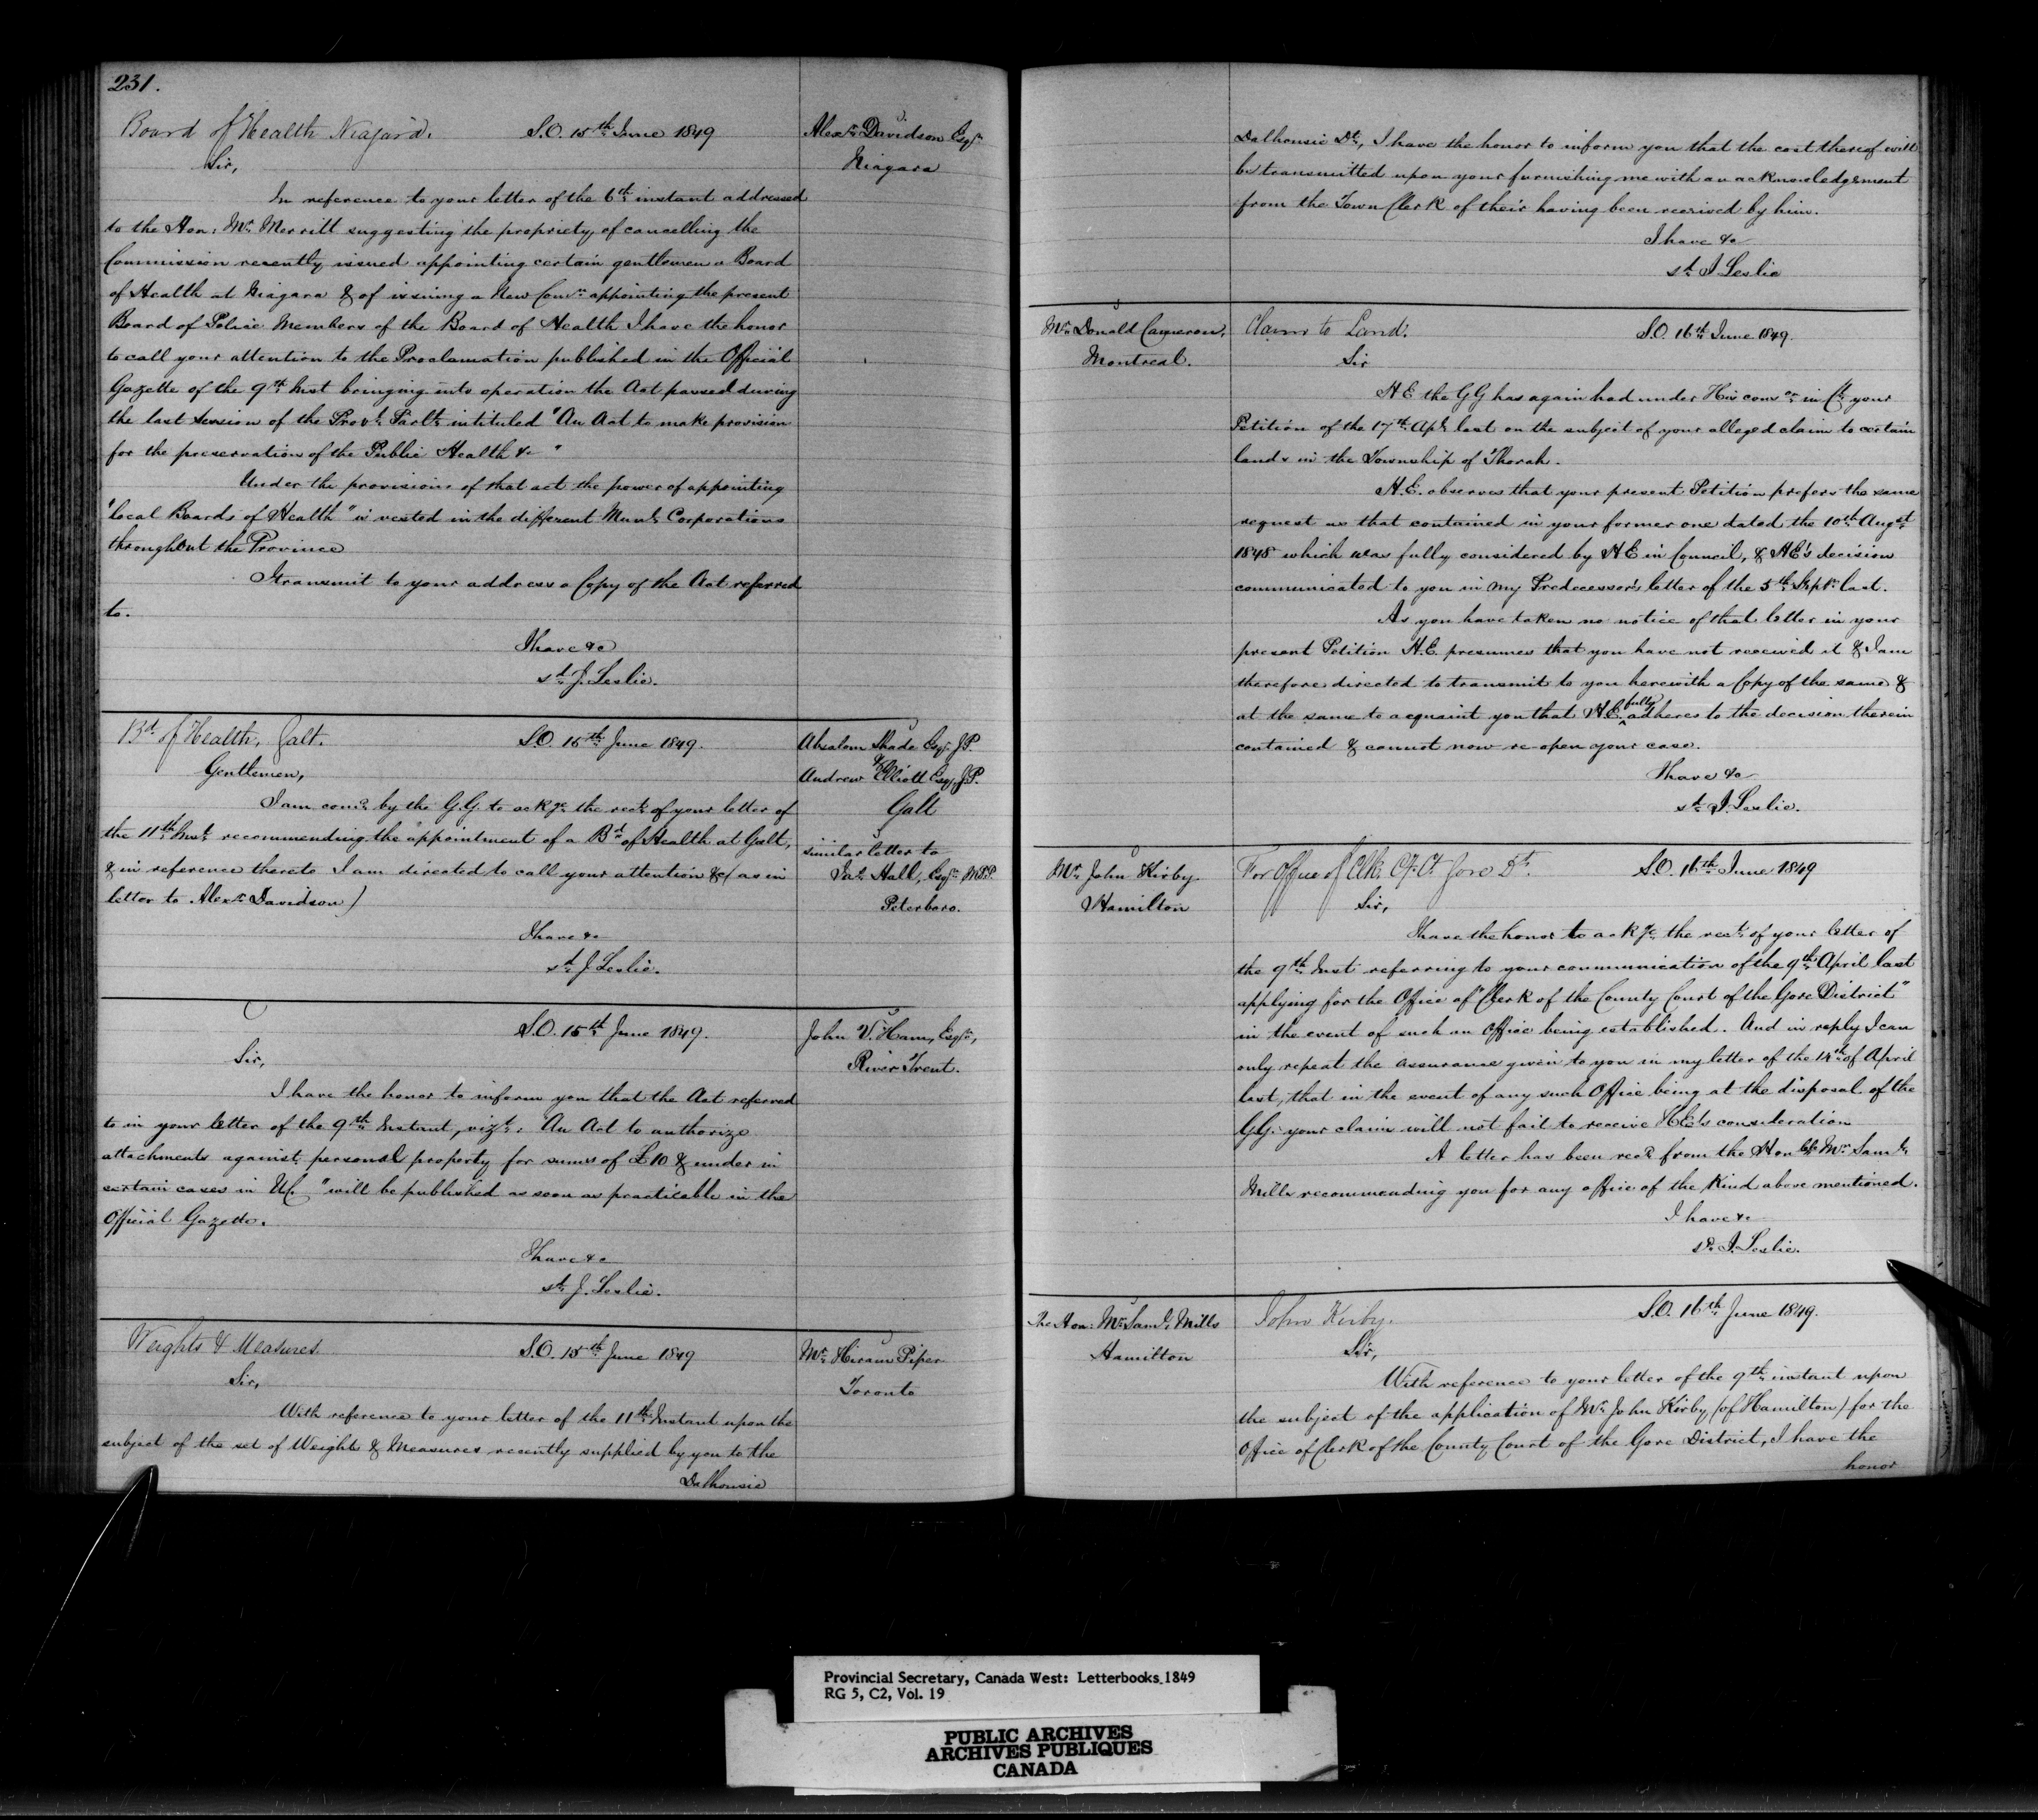 231.
Board of Health Niagara. S.O. 15th June 1849
Alexr Davidson Esqr
Niagara
Sir,
In reference to your letter of the 6th instant addressed
to the Hon: Mr Merritt suggesting the propriety of cancelling the
Commission recently issued appointing certain gentlemen a Board
of Health at Niagara & of issuing a New Comn appointing the present
Board of Police Members of the Board of Health I have the honor
to call your attention to the Proclamation published in the Official
Gazette of the 9th Inst bringing into operation the Act passed during
the last session of the Provl Parlt intituled "An Act to make provision
for the preservation of the Public Health &c "
Under the provisions of that act the power of appointing
"local Boards of Health" is vested in the different Munl Corporations
throughout the Province
I transmit to your address a Copy of the Act referred
to.
I have &c
sd J. Leslie.
Bd of Health, Galt. S.O. 15th June 1849.
Absalom Shade Esqr J.P.
&
Andrew Elliott Esq, J.P.
Galt
similar letter to
Jas Hall, Esqr M.P.P.
Peterboro.
Gentlemen,
I am comd by the G.G. to ackge the rect of your letter of
the 11th Inst recommending the appointment of a Bd of Health at Galt,
& in reference thereto I am directed to call your attention &c (as in
letter to Alexr Davidson)
I have &c
sd J. Leslie.
S.O. 15th June 1849.
John V. Ham, Esqr,
River Trent.
Sir,
I have the honor to inform you that the Act referred
to in your letter of the 9th Instant, vizt: "An Act to authorize
attachments against personal property for sums of £10 & under in
certain cases in U.C. " will be published as soon as practicable in the
Official Gazette.
I have &c
sd J. Leslie.
Weights & Measures. S.O. 15th June 1849
Mr Hiram Piper
Toronto
Sir,
With reference to your letter of the 11th Instant upon the
subject of the set of Weights & Measures recently supplied by you to the
Dalhousie
Dalhousie Dt, I have the honor to inform you that the cost thereof will
be transmitted upon your furnishing me with an acknowledgement
from the Town Clerk of their having been received by him.
I have &c
sd J Leslie
Mr Donald Cameron,
Montreal.
Claim to Land. S.O. 16th June 1849.
Sir
H.E. the GG has again had under His conson in Cl your
Petition of the 17th Apl last on the subject of your alleged claim to certain
lands in the Township of Thorah.
H.E. observes that your present Petition prefers the same
request as that contained in your former one dated the 10th Augst
1848 which was fully considered by H E in Council, & HE's decision
communicated to you in my Predecessor's letter of the 5th Septr last.
As you have taken no notice of that letter in your
present Petition H.E. presumes that you have not received it & I am
therefore directed to transmit to you herewith a Copy of the same &
at the same to acquaint you that H.E. fully adheres to the decision therein
contained & cannot now re-open your case.
I have &c
sd J. Leslie.
Mr John Kirby
Hamilton
For Office of Clk. Cy. Ct Gore Dt. S.O. 16th June 1849
Sir,
I have the honor to ackge the rect of your letter of
the 9th Inst referring to your communication of the 9th April last
applying for the Office of "Clerk of the County Court of the Gore District"
in the event of such an Office being established. And in reply I can
only repeat the assurance given to you in my letter of the 14th of April
last, that in the event of any such Office being at the disposal of the
G.G. your claim will not fail to receive H.E's consideration
A letter has been recd from the Honble Mr Saml
Mills recommending you for any office of the kind above mentioned.
I have &c
sd. J. Leslie.
The Hon: Mr Saml Mills
Hamilton
John Kirby. S.O. 16th June 1849.
Sir,
With reference to your letter of the 9th instant upon
the subject of the application of Mr John Kirby (of Hamilton) for the
Office of Clerk of the County Court of the Gore District, I have the
honor
Provincial Secretary, Canada West: Letterbooks 1849
RG 5, C2, Vol. 19
PUBLIC ARCHIVES
ARCHIVES PUBLIQUES
CANADA